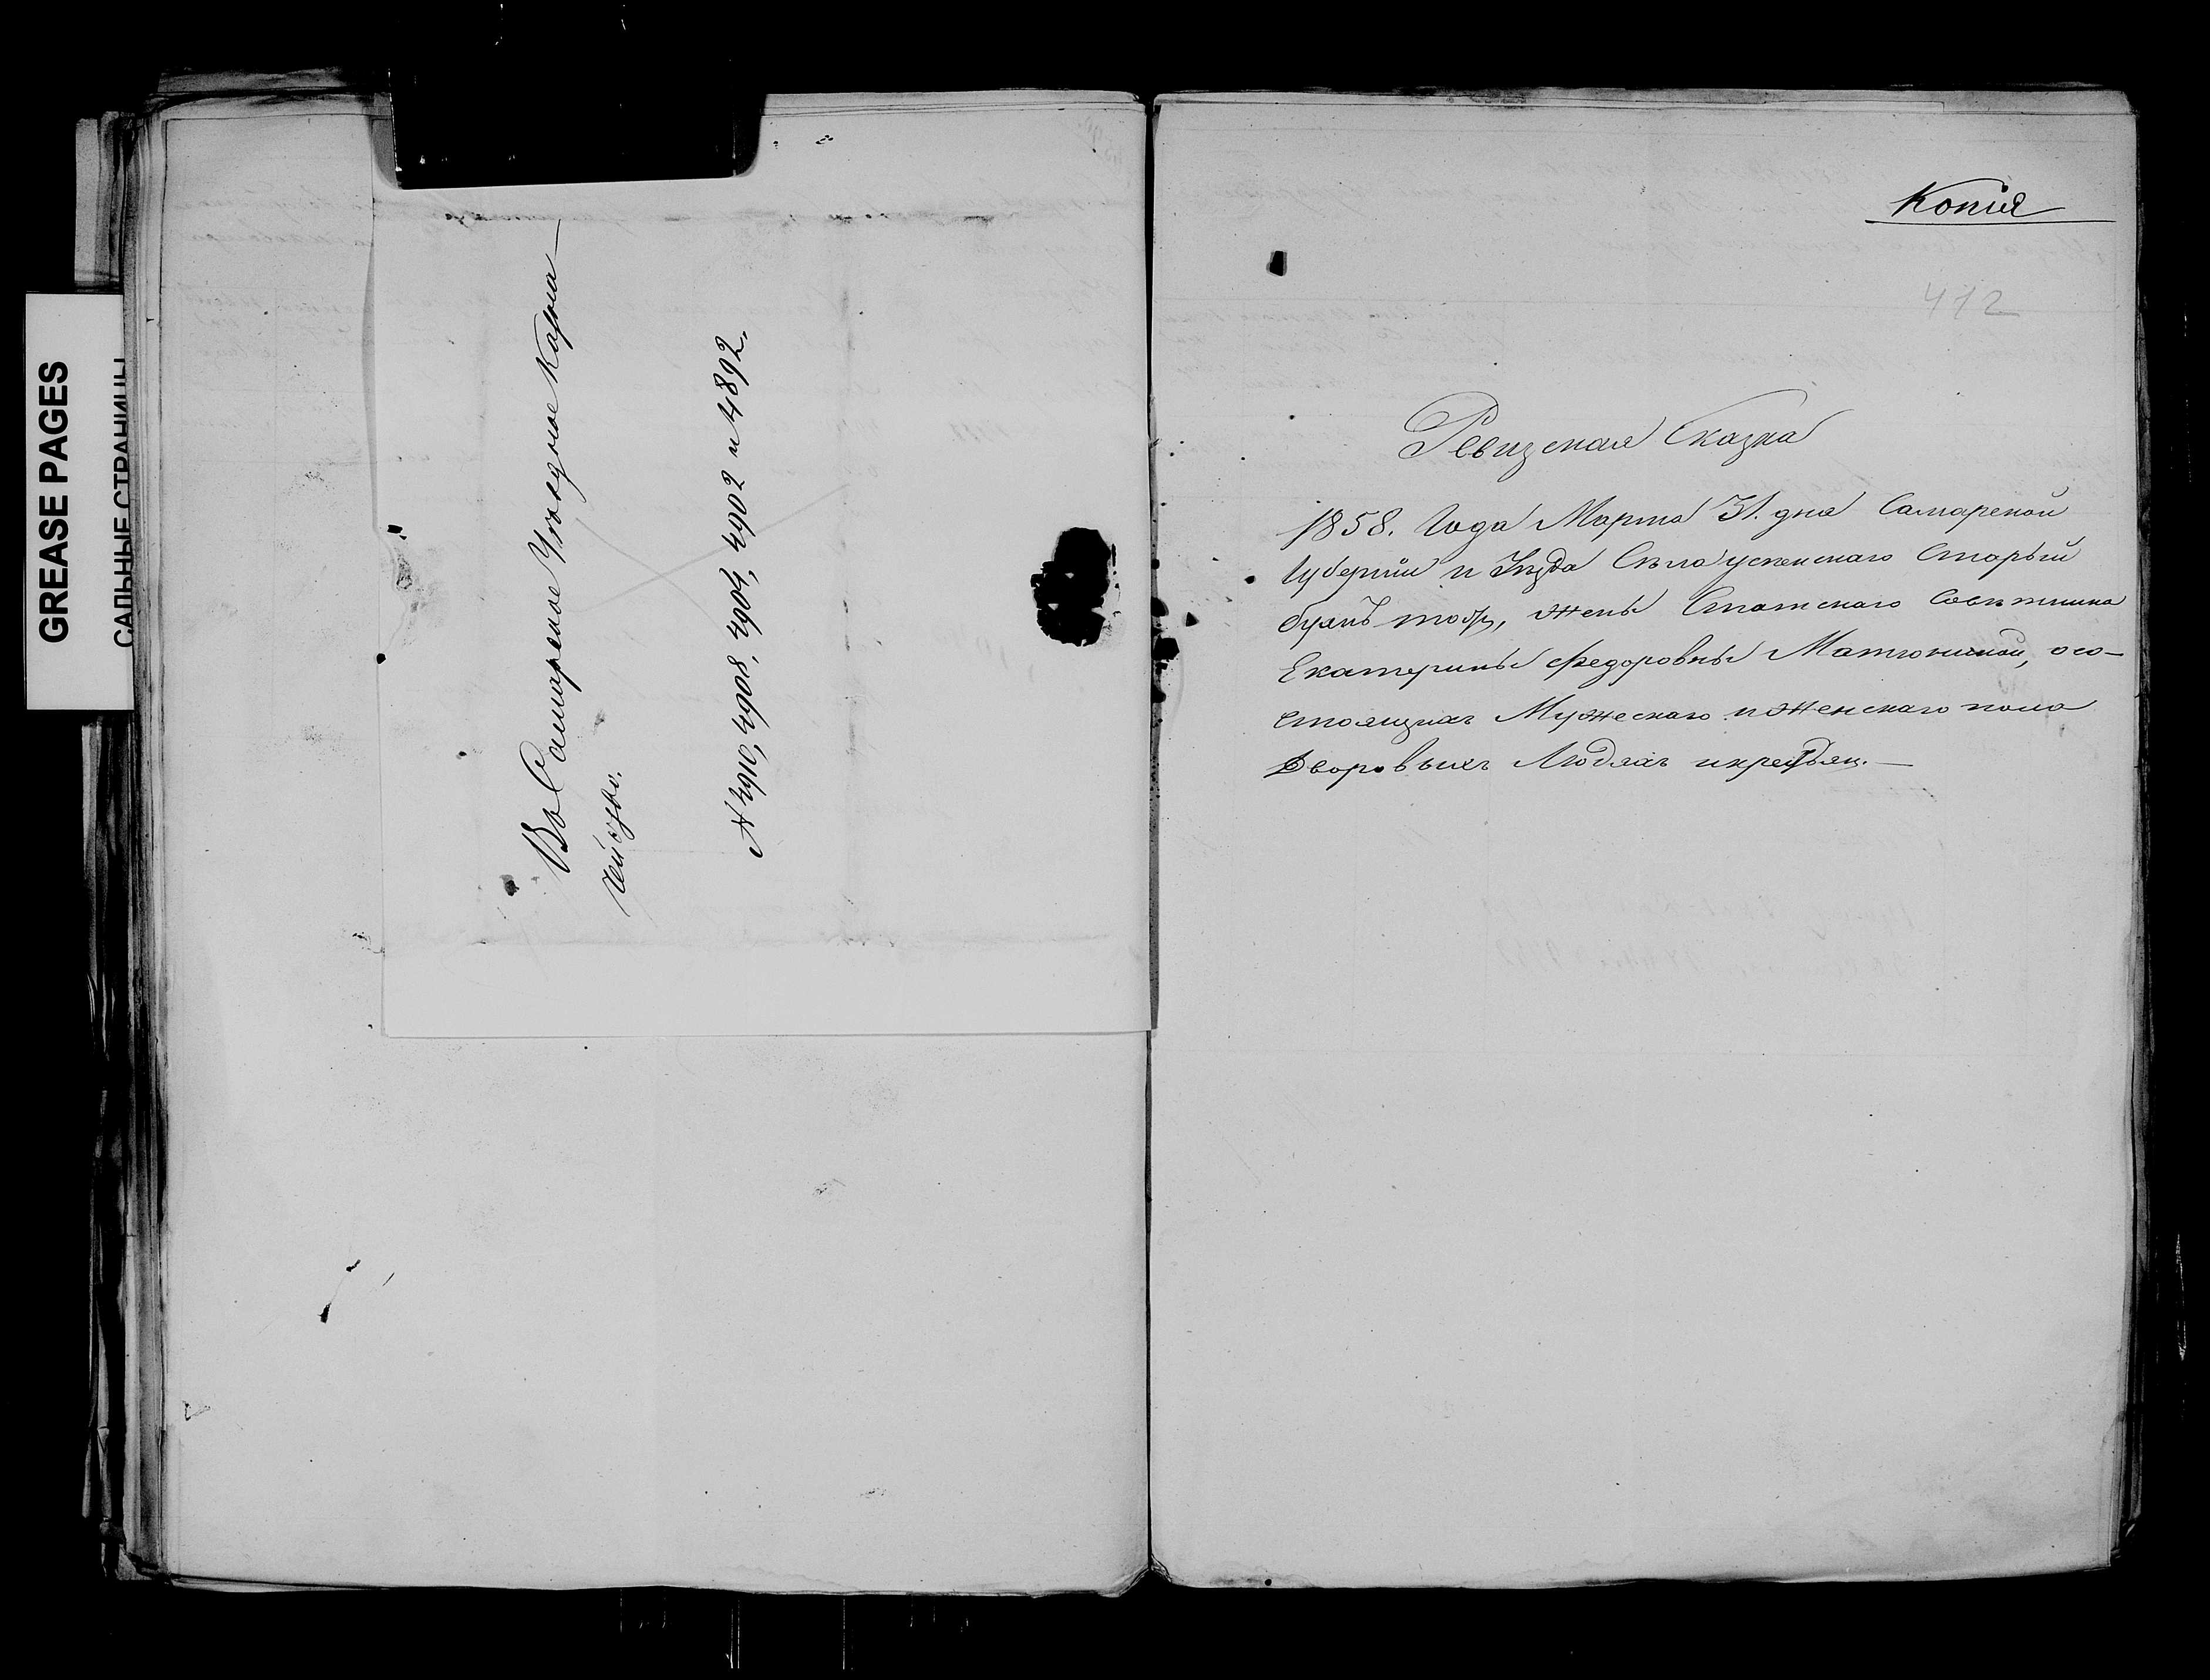 GREASE PAGES
САЛЬНЫЕ СТРАНИЦЫ
Въ Самарское Уѣздное Казна
чейство.
№ 4910, 4908, 4904, 4902 и 4892.
Копия
412
Ревизская Сказка
1858. Года Марта 31. дня Самарской
Губернiи и Уѣзда Села Успенскаго Старый
буянъ тожъ, жены Статскаго Совѣтника
Екатерины Федоровны Матюниной, осо-
стоящихъ Мужескаго и Женскаго пола
Дворовыхъ Людяхъ и крестьян.—